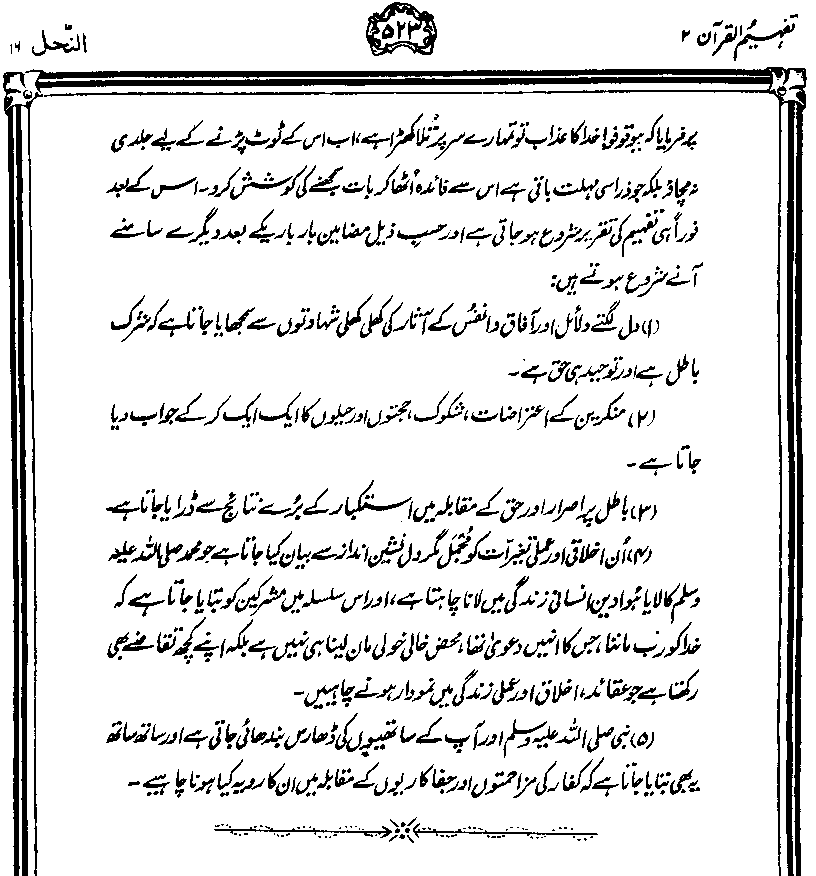 تفہیم القرآن ۲
۵۲۳
النّحل ۱۶
پر فرمایا کہ بیوقوفو! خدا کا عذاب تو تمہارے سر پر تُلا کھڑا ہے، اب اس کے ٹوٹ پڑنے کے لیے جلدی
نہ مچاؤ بلکہ جو ذرا سی مہلت باقی ہے اس سے فائدہ اُٹھا کر بات سمجھنے کی کوشش کرو۔ اس کے بعد
فوراً ہی تفہیم کی تقریر شروع ہو جاتی ہے اور حسبِ ذیل مضامین بار بار یکے بعد دیگرے سامنے
آنے شروع ہوتے ہیں:
(۱) دل لگتے دلائل اور آفاق و انفُس کے آثار کی کھلی کھلی شہادتوں سے سمجھایا جاتا ہے کہ شرک
باطل ہے اور توحید ہی حق ہے۔
(۲) منکرین کے اعتراضات، شکوک، حجتوں اور حیلوں کا ایک ایک کر کے جواب دیا
جاتا ہے۔
(۳) باطل پر اصرار اور حق کے مقابلہ میں استکبار کے بُرے نتائج سے ڈرایا جاتا ہے۔
(۴) اُن اخلاقی اور عملی تغیرات کو مُجمل مگر دل نشین انداز سے بیان کیا جاتا ہے جو محمد صلی اللہ علیہ
وسلم کا لایا ہُوا دین انسانی زندگی میں لانا چاہتا ہے، اور اس سلسلہ میں مشرکین کو بتایا جاتا ہے کہ
خدا کو رب ماننا، جس کا انہیں دعویٰ تھا، محض خالی خولی مان لینا ہی نہیں ہے بلکہ اپنے کچھ تقاضے بھی
رکھتا ہے جو عقائد، اخلاق اور عملی زندگی میں نمودار ہونے چاہییں۔
(۵) نبی صلی اللہ علیہ وسلم اور آپ کے ساتھیوں کی ڈھارس بندھائی جاتی ہے اور ساتھ ساتھ
یہ بھی بتایا جاتا ہے کہ کفار کی مزاحمتوں اور جفا کاریوں کے مقابلہ میں ان کا رویہ کیا ہونا چاہیے۔